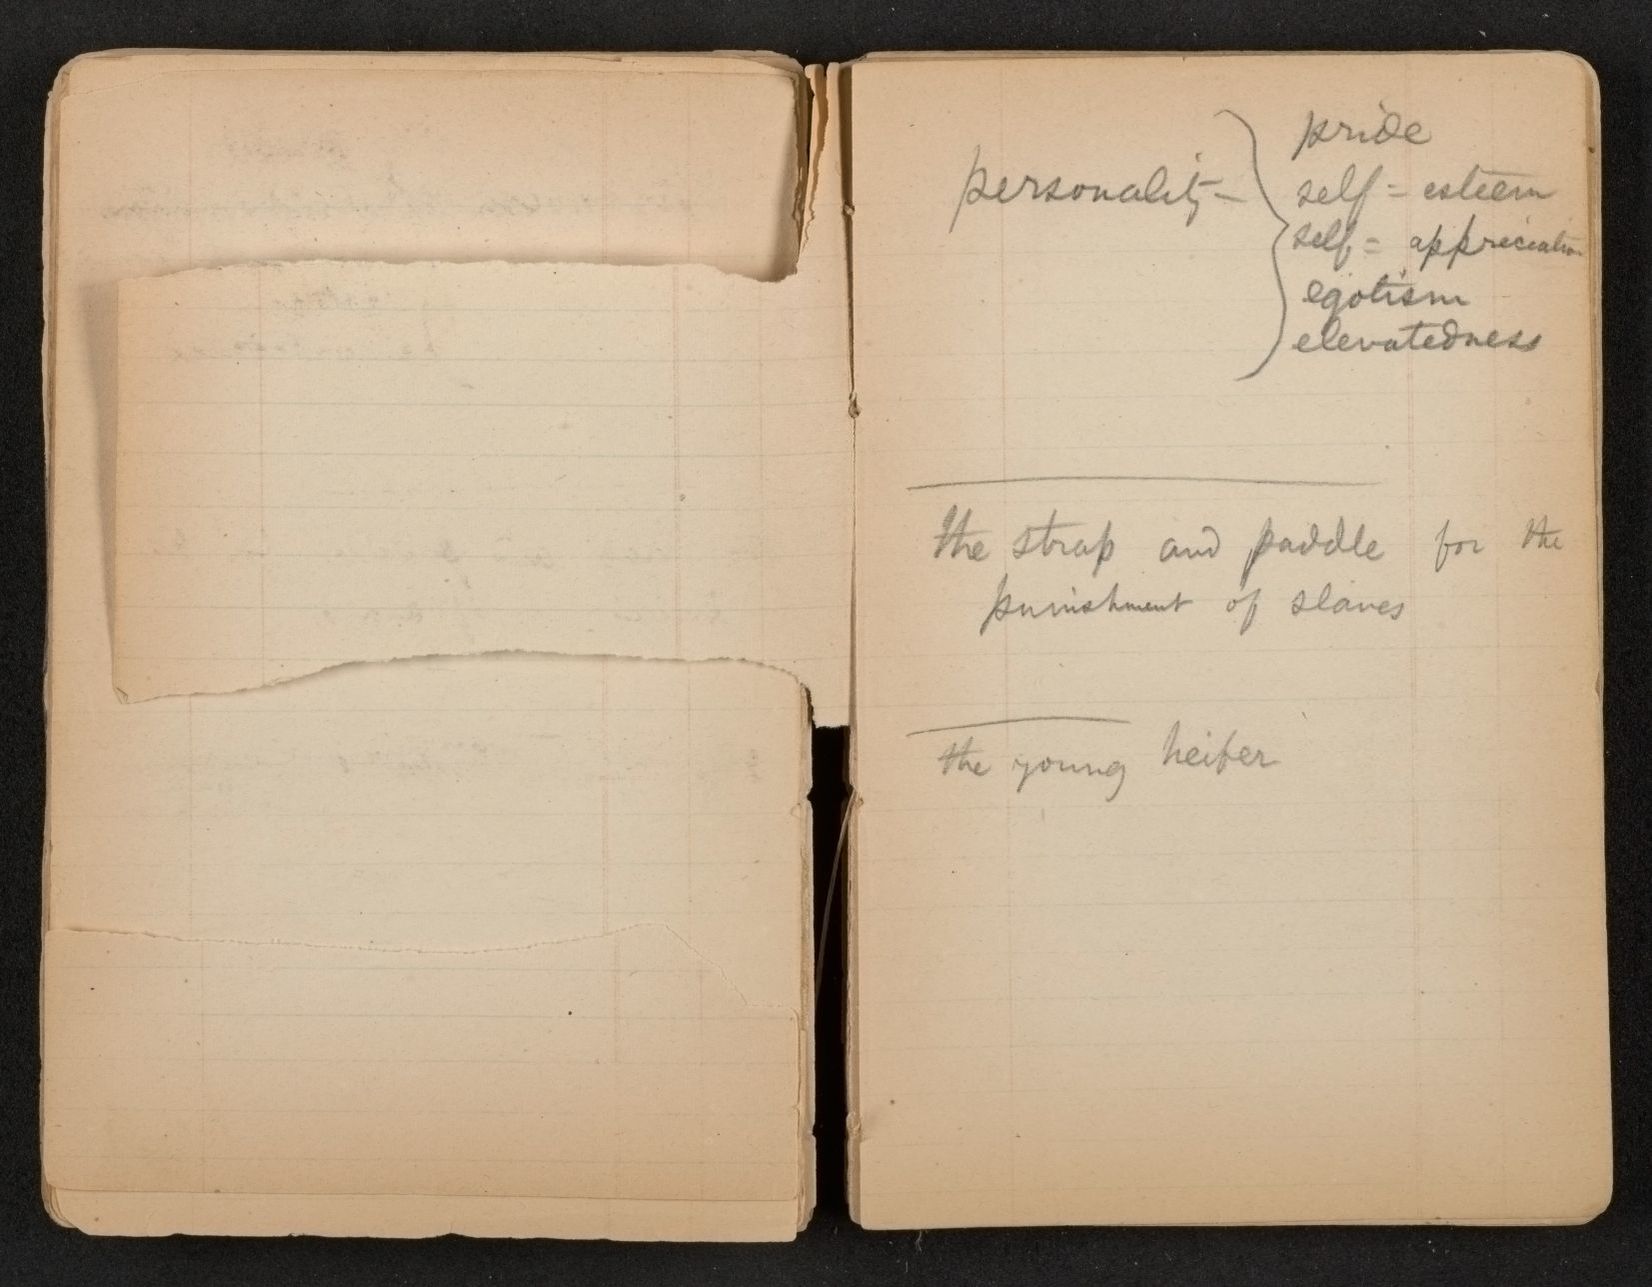 pride
personality –
self = esteem
self = appreciation
egotism
elevatedness
the strap and paddle for the
punishment of slaves
the young heifer